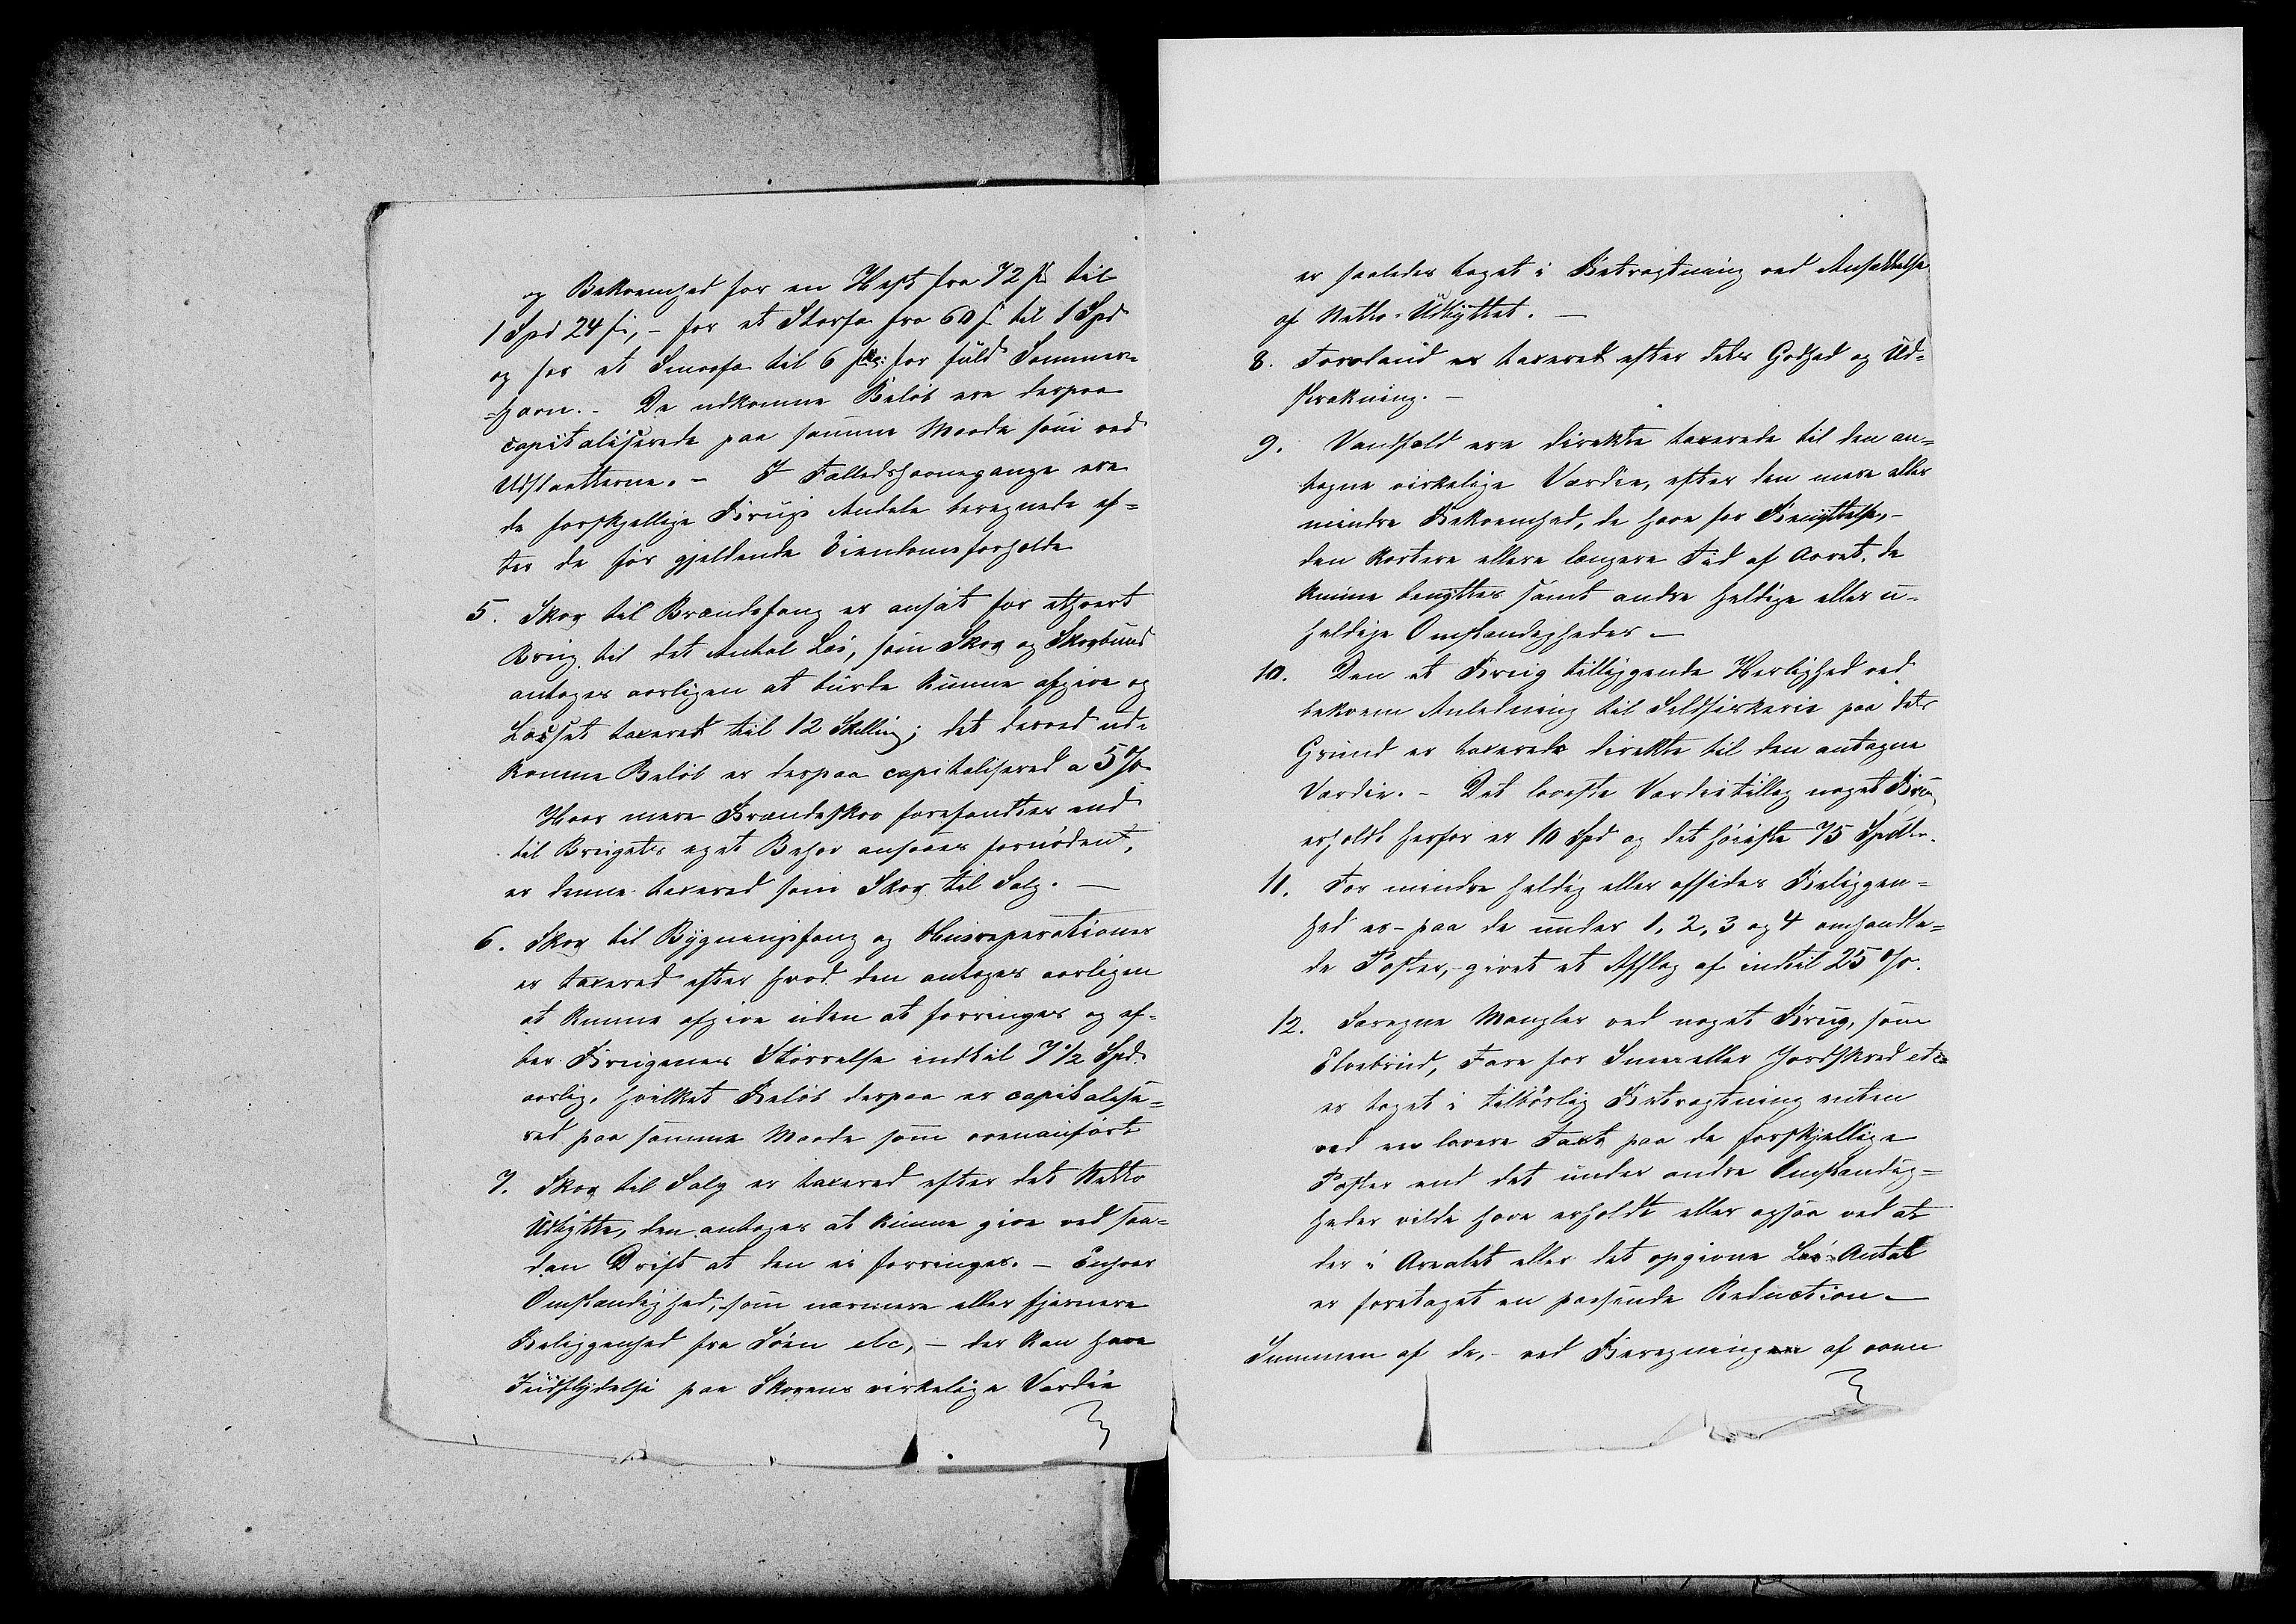 og Bekvemhed for en Hest fra 72 ß til
1 Spd 24 ß, - for et Storfæ fra 60 ß til 1 Spd
og for et Smaafæ til 6 ß for fuld Sommer-
=havn. - De udkomne Beløb ere derpaa
capitaliserede paa samme Maade som ved
Udslaatterne. - I Fælledshavnegange ere
de forskjellige Brugs Andele beregnede ef=
ter de før gjeldende Eiendomsforholde
5. Skov til Brændefang er ansat for ethvert
Brug til det Antal Læs, som Skov og Skovbund
antages aarligen at burde kunne afgive og
Læsset taxeret til 12 Skilling; det derved ud-
komne Beløb er derpaa capitaliseret a 5 %
Hvor mere Brændeskov forefandtes end
til Brugets eget Behov ansaaes fornødent,
er denne taxered som Skov til Salg. —
6. Skov til Bygningsfang og Husreparationer
er taxered efter hvad den antages aarligen
at kunne afgive uden at forringes og ef=
ter Brugenes Størrelse indtil 7 1/2 Spd.
aarlig, hvilket Beløb derpaa er capitalise=
red paa samme Maade som ovenanført
7. Skov til Salg er taxered efter det Netto
Udbytte, den antages at kunne give ved saa=
dan Drift at den ei forringes. - Enhver
Omstændighed, som nærmere eller fjernere
Beliggenhed fra Søen etc, - der kan have
Indflydelse paa Skovens virkelige Værdie
er saaledes taget i Betragtning ved Ansættelse
af Netto-Udbyttet. —
8. Torvland er taxeret efter dets Godhed og Ud=
strækning. —
9. Vandfald ere direkte taxerede til den an=
tagne virkelige Værdie, efter den mere eller
mindre Bekvemhed, de have for Benyttelse, -
den kortere eller længere Tid af Aaret, de
kunne benyttes samt andre heldige eller u-
heldige Omstændigheder —
10. Den et Brug tilliggende Herlighed ved
bekvem Anledning til Sildfiskerie paa dets
Grund er taxered direkte til den antagne
Værdie. - Det laveste Værdietillæg noget Brug
erholdt herfor er 10 Spd og det høieste 75 Spdlr.
11. For mindre heldig eller afsides Beliggen=
hed er - paa de under 1, 2, 3 og 4 omhandle=
de Poster, - givet et Afslag af indtil 25 %.
12. Særegne Mangler ved noget Brug, som
Elvebrud, Fare for Snee eller Jordskred etc
er taget i tilbørlig Betragtning enten
ved en lavere Taxt paa de forskjellige
Poster end det under andre Omstændig=
heder vilde have erholdt eller ogsaa ved at
der i Arealet eller det opgivne Læs-Antal
er foretaget en passende Reduction. —
Summen af de, - ved Beregningen af oven